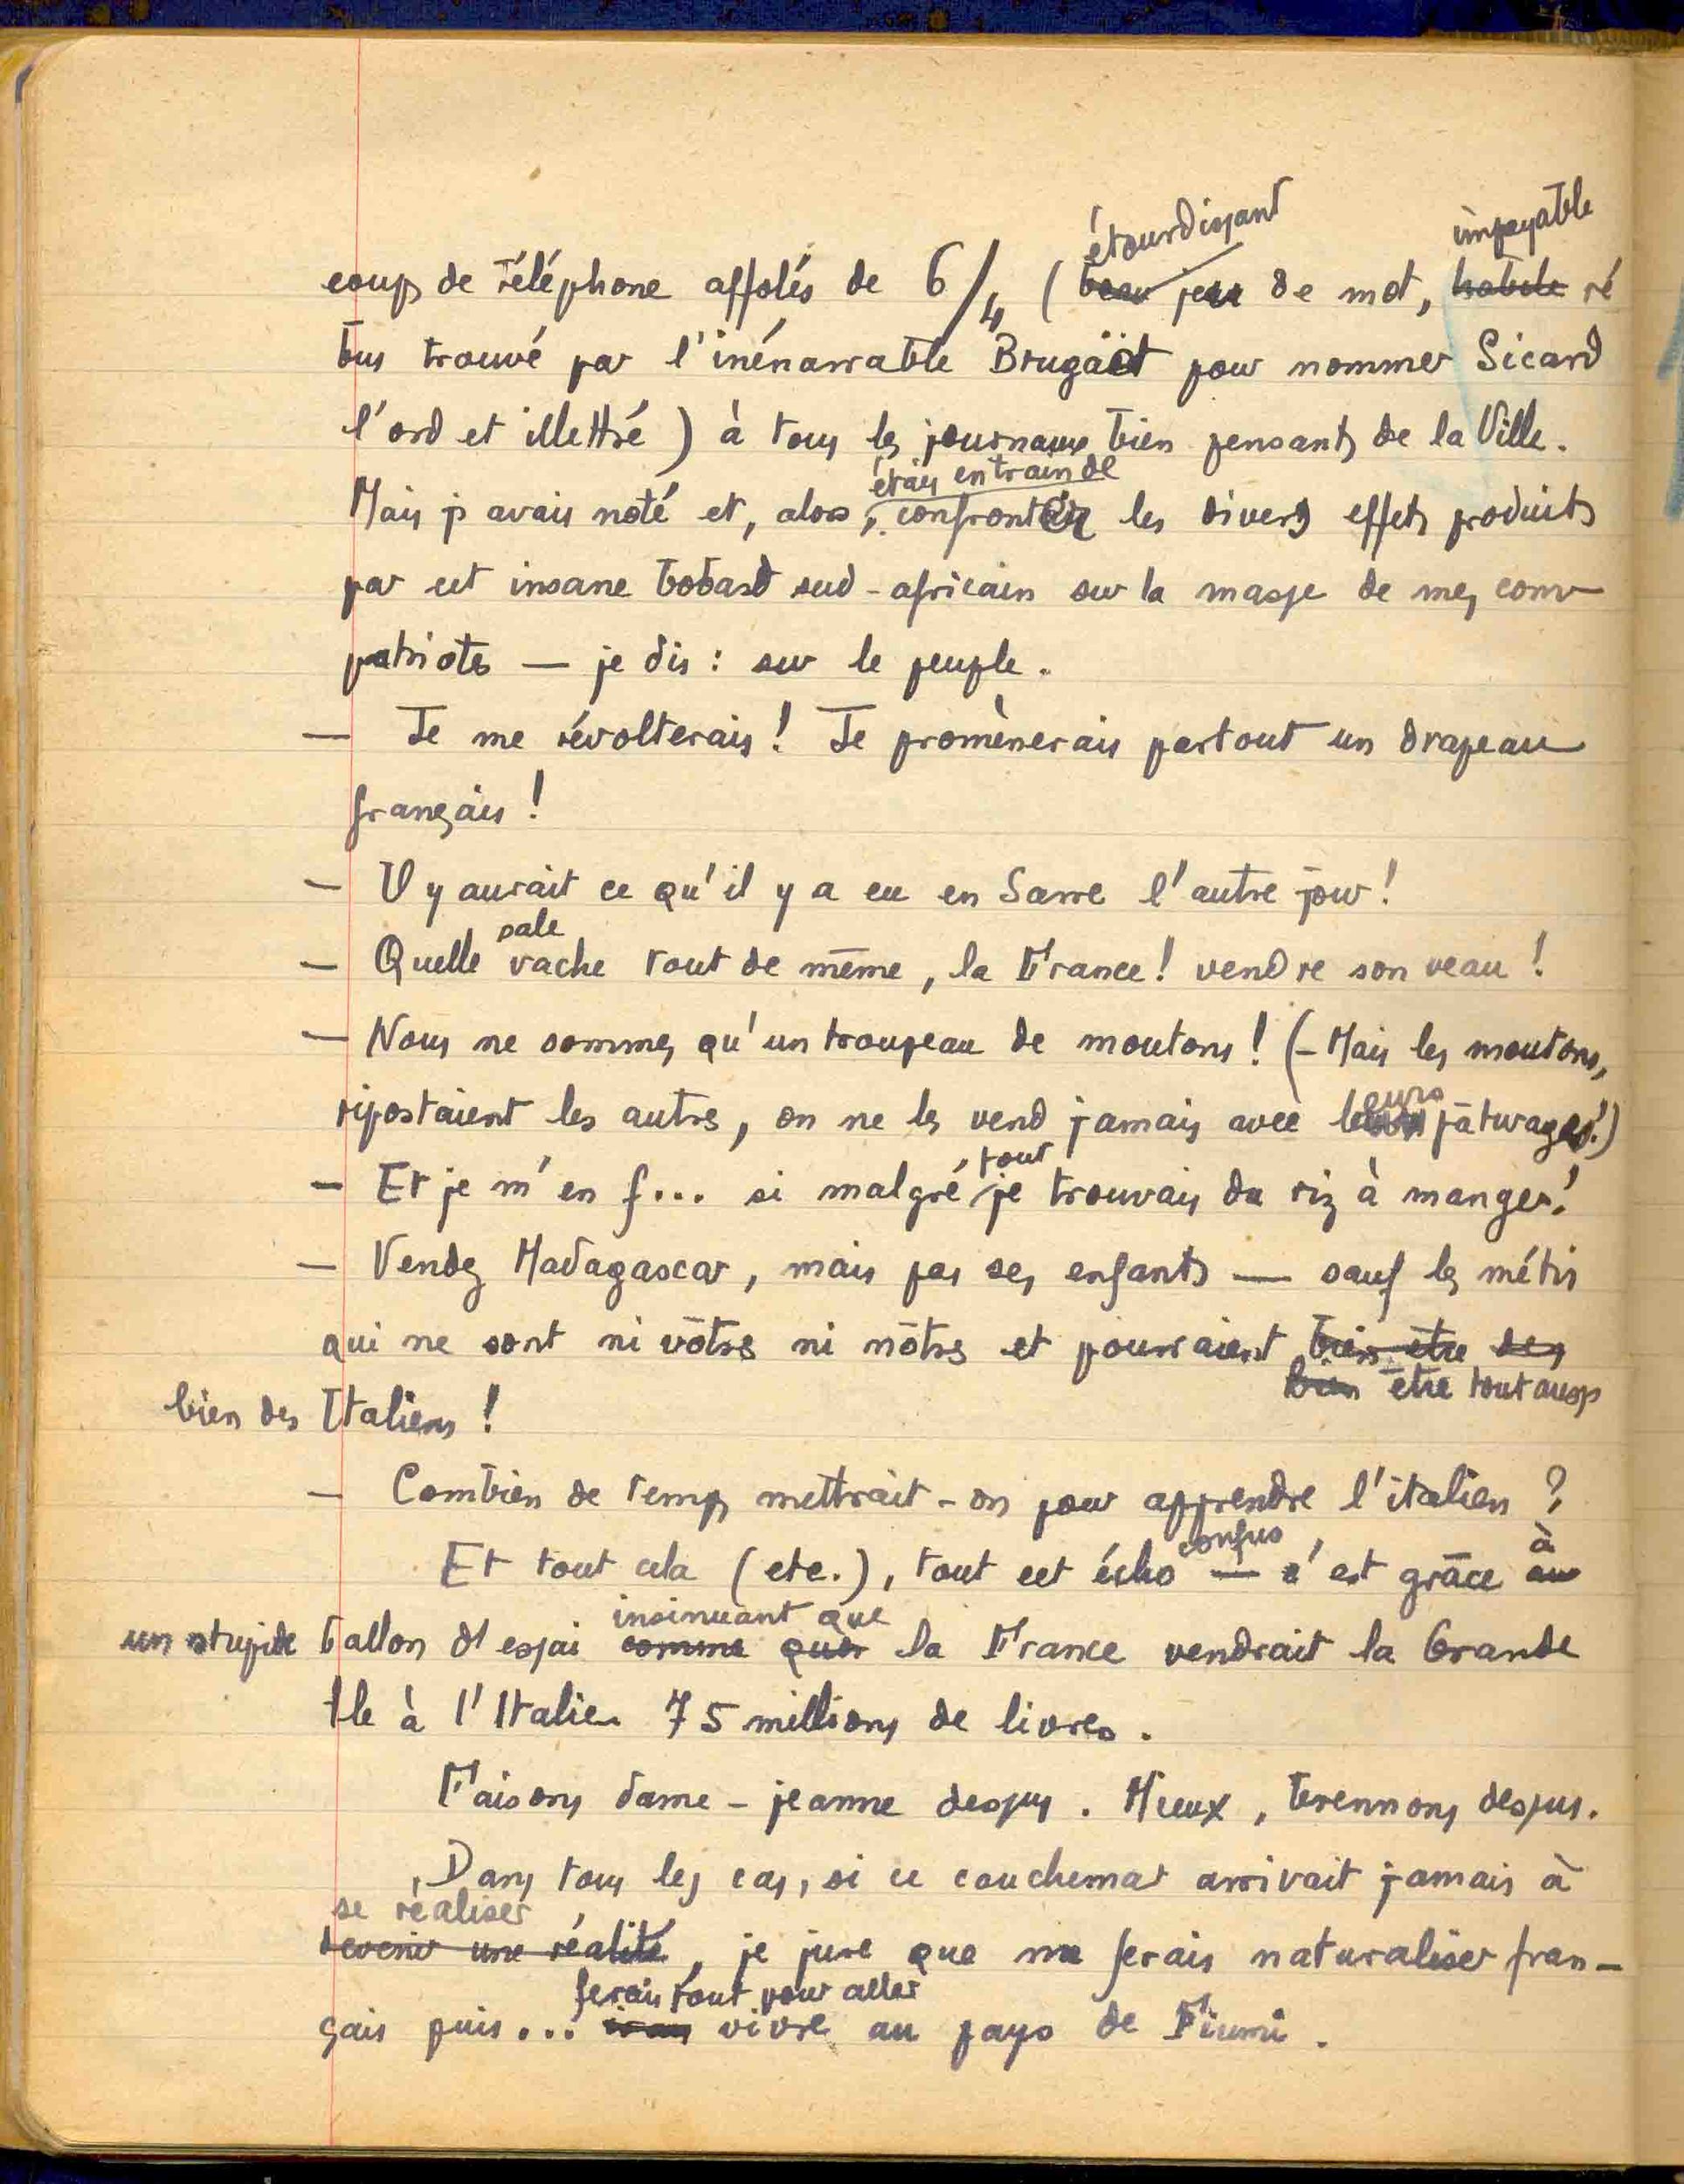 étourdissant impayable
coups de téléphone affolés de 6/4 (beau jeu de mot, habile ré
bus trouvé par l'inénarrable pour nommer Sicard
l'ord et illettré) à tous les journaux bien pensants de la Ville.
étais en train de
Mais j'avais noté et, alors, confronter les divers effets produits
par cet insane bobard sud-africain sur la masse de mes com
patriotes — je dis : sur le peuple.
— Je me révolterais ! Je promènerais partout un drapeau
français !
— Il y aurait ce qu'il y a eu en Sarre l'autre jour !
sale
— Quelle vache tout de même, la France ! vendre son veau !
— Nous ne sommes qu'un troupeau de moutons ! (- Mais les moutons,
ripostaient les autres, on ne les vend jamais avec leurs pâturages !)
tout
— Et je m'en f... si malgré je trouvais du riz à manger !
— Vendez Madagascar, mais pas ses enfants — sauf les métis
qui ne sont ni vôtres ni nôtres et pourraient bien être des
bien être tout aussi
bien des Italiens !
— Combien de temps mettrait-on pour apprendre l'italien ?
confus à
Et tout cela (etc.), tout cet écho — c'est grâce au
insinuant que
un stupide ballon d'essai comme quoi la France vendrait la Grande
Ile à l'Italie 75 millions de livres.
Faisons dame-jeanne dessus. Mieux, brennons dessus.
Dans tous les cas, si ce cauchemar arrivait jamais à
se réaliser
devenir une réalité, je jure que me ferais naturaliser fran-
ferais tout pour aller
çais puis... irais vivre au pays de Fiumi.